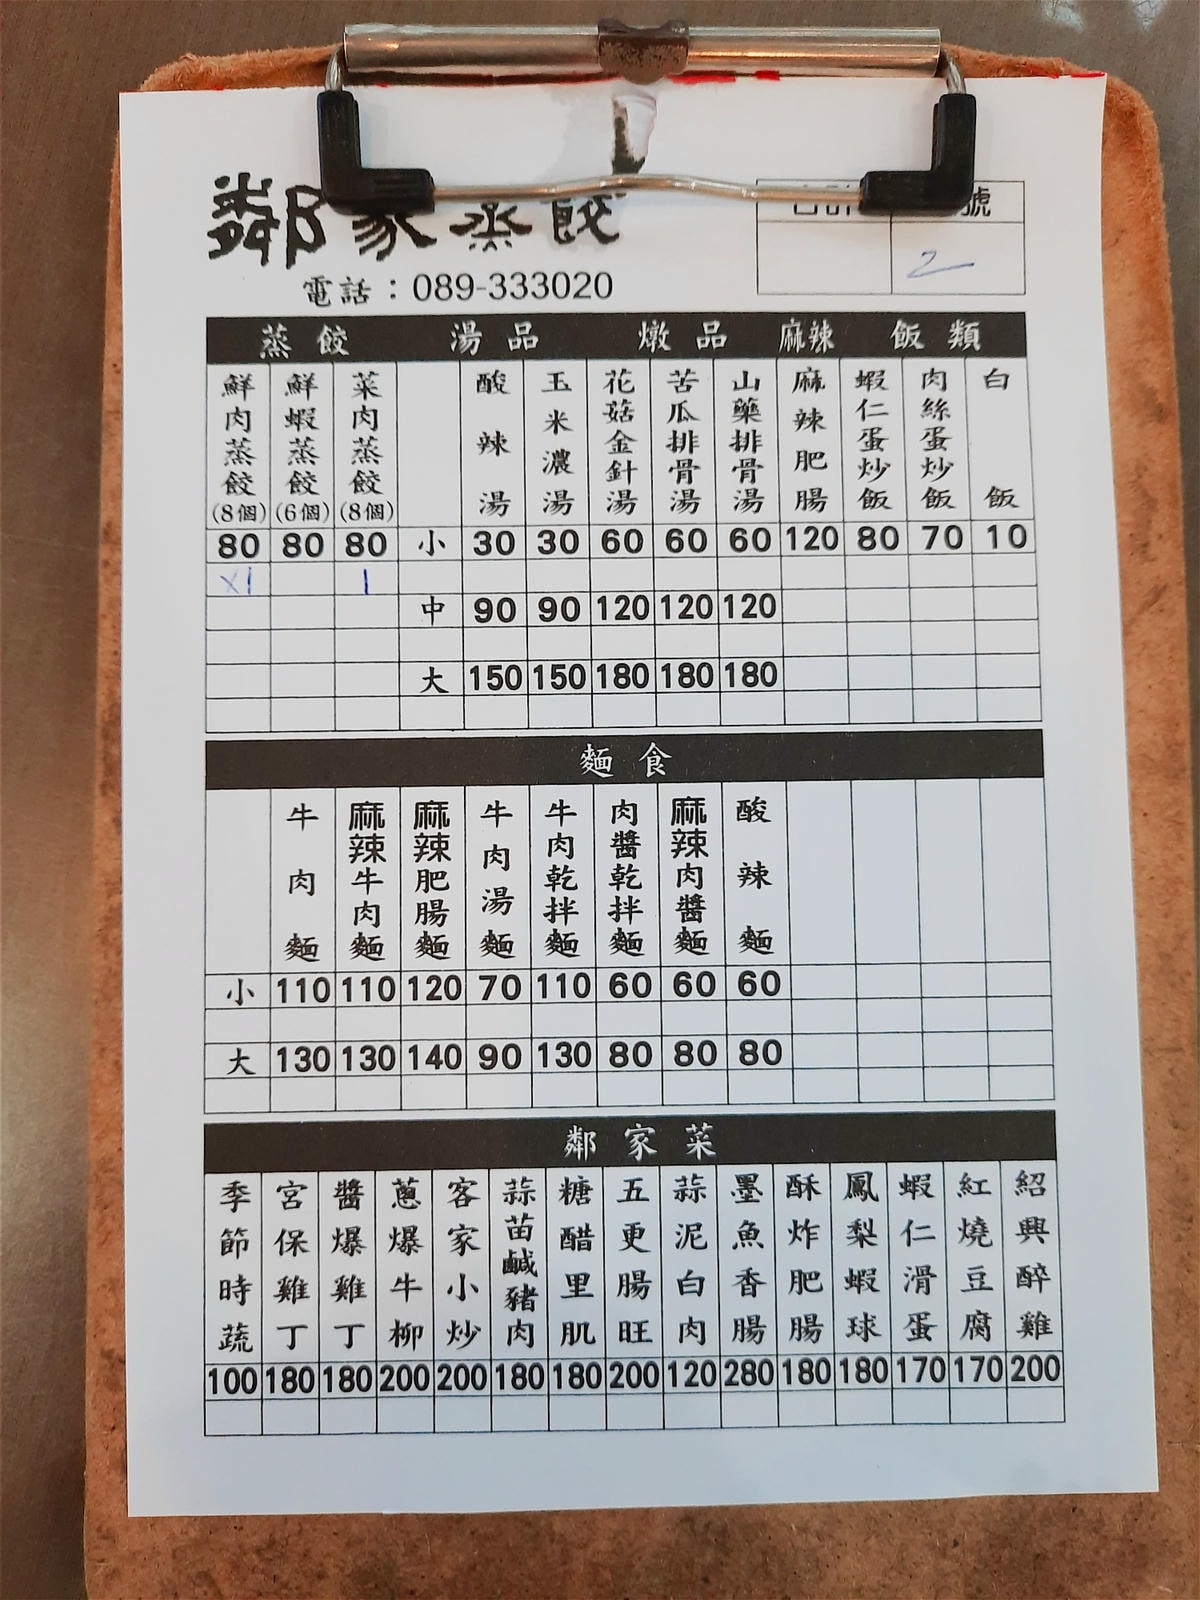 鄰家蒸餃
合計 號
電話：089-333020
2
蒸餃 湯品 燉品 麻辣 飯類
鮮肉蒸餃(8個) 鮮蝦蒸餃(6個) 菜肉蒸餃(8個) 酸辣湯 玉米濃湯 花菇金針湯 苦瓜排骨湯 山藥排骨湯 麻辣肥腸 蝦仁蛋炒飯 肉絲蛋炒飯 白飯
80 80 80 小 30 30 60 60 60 120 80 70 10
X1 1
中 90 90 120 120 120
大 150 150 180 180 180
麵食
牛肉麵 麻辣牛肉麵 麻辣肥腸麵 牛肉湯麵 牛肉乾拌麵 肉醬乾拌麵 麻辣肉醬麵 酸辣麵
小 110 110 120 70 110 60 60 60
大 130 130 140 90 130 80 80 80
鄰家菜
季節時蔬 宮保雞丁 醬爆雞丁 蔥爆牛柳 客家小炒 蒜苗鹹豬肉 糖醋里肌 五更腸旺 蒜泥白肉 墨魚香腸 酥炸肥腸 鳳梨蝦球 蝦仁滑蛋 紅燒豆腐 紹興醉雞
100 180 180 200 200 180 180 200 120 280 180 180 170 170 200